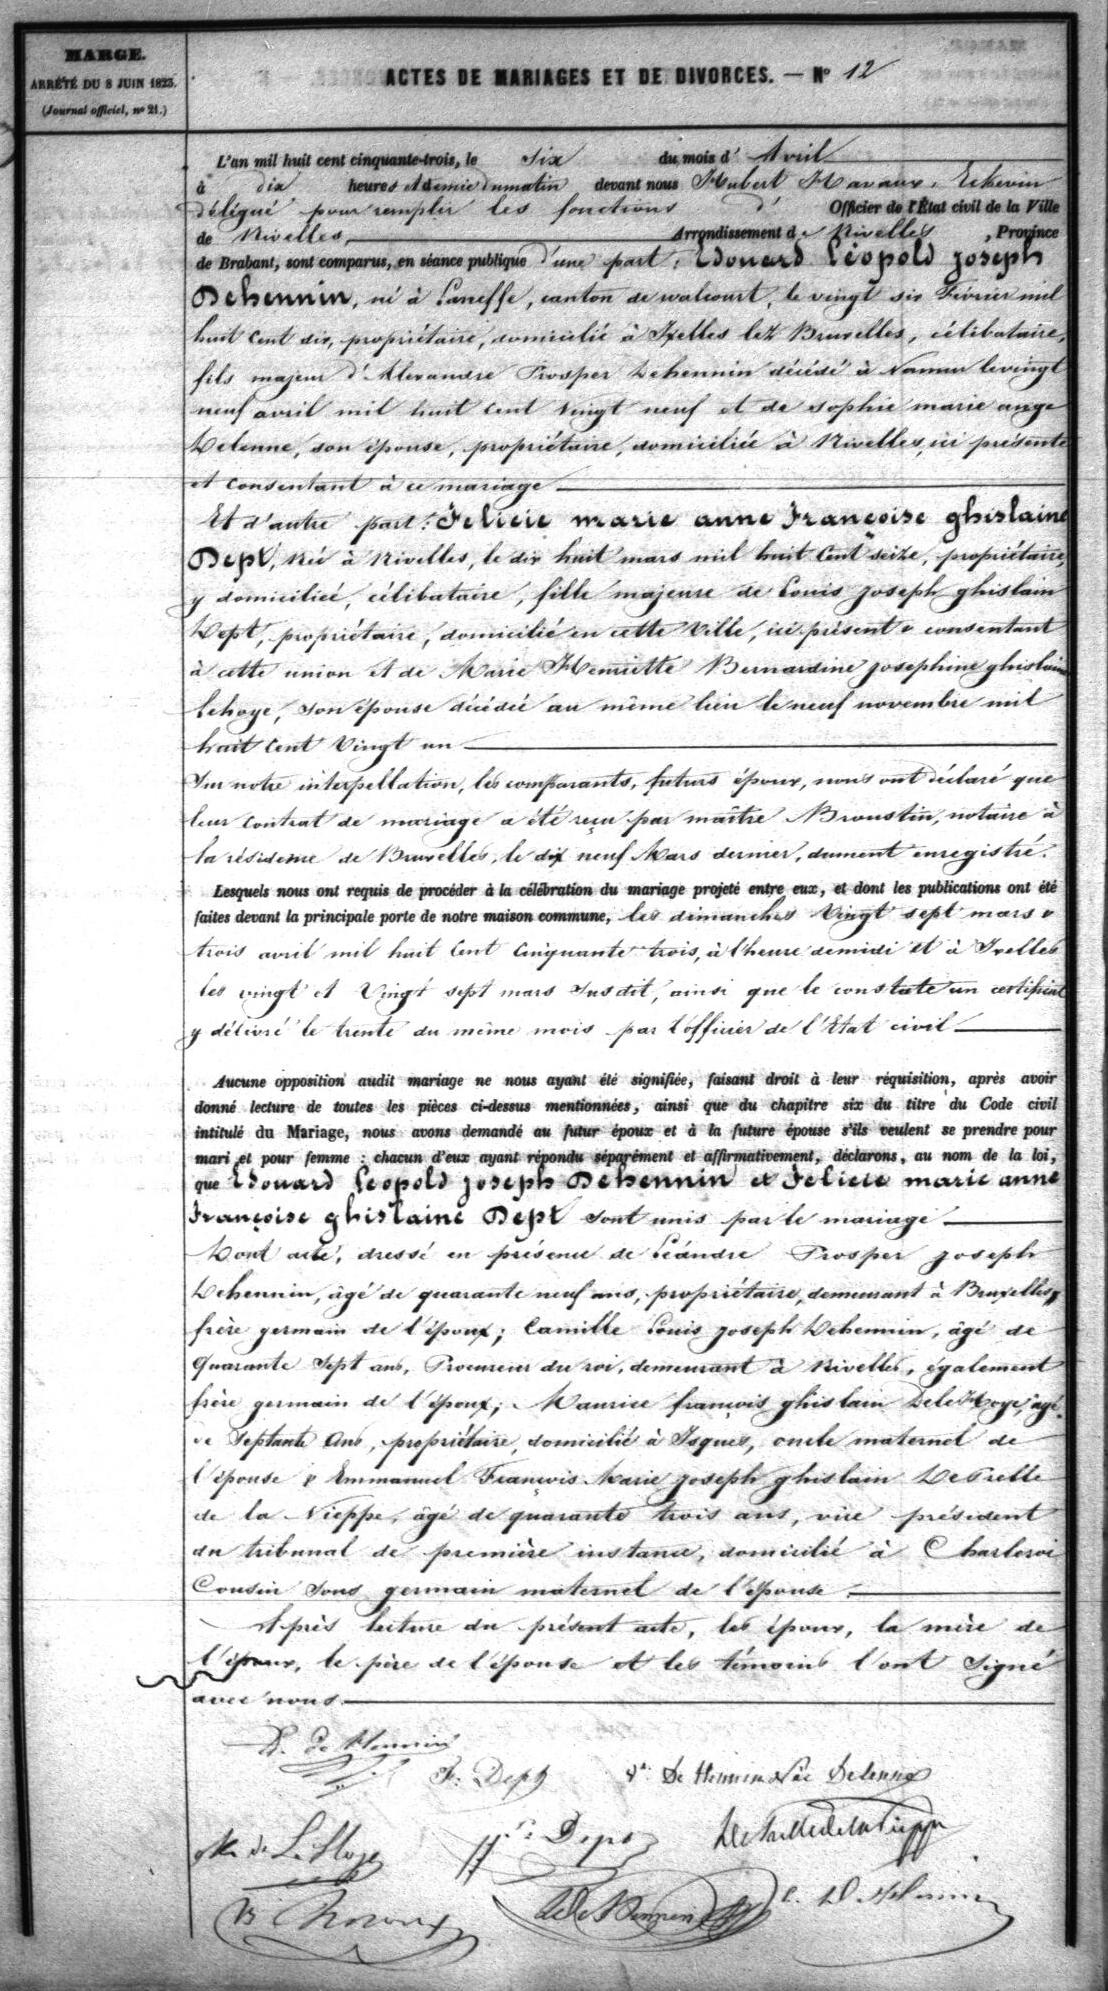 MARGE.
ARRÊTÉ DU 8 JUIN 1823.
(Journal officiel, nº 21.)
ACTES DE MARIAGES ET DE DIVORCES. — Nº 12
L'an mil huit cent cinquante-trois, le six du mois d' Avril
à dix heures et demie du matin devant nous Hubert Havaux, Echevin
délégué pour remplir les fonctions d' Officier de l'État civil de la Ville
de Nivelles, Arrondissement de Nivelles, Province
de Brabant, sont comparus, en séance publique d'une part: Edouard Léopold Joseph
Dehennin, né à Laneffe, canton de walcourt, le vingt six Février mil
huit Cent dix, propriétaire, domicilié à Ixelles lez Bruxelles, célibataire,
fils majeur d'Alexandre Prosper Dehennin décédé à Namur le vingt
neuf avril mil huit Cent vingt neuf et de Sophie marie ange
Delenne, son épouse, propriétaire, domiciliée à Nivelles, ici présente
et consentant à ce mariage
Et d'autre part: Felicie marie anne Françoise ghislaine
Dept, née à Nivelles, le dix huit mars mil huit Cent seize, propriétaire,
y domiciliée, célibataire, fille majeure de Louis Joseph ghislain
Dept, propriétaire, domicilié en cette Ville, ici présent & consentant
à cette union et de Marie Henriette Bernardine Josephine ghislaine
Lehoye, son épouse décédée au même lieu le neuf novembre mil
huit Cent Vingt un
Sur notre interpellation, les comparants, futurs époux, nous ont déclaré que
leur Contrat de mariage a été reçu par maître Broustin, notaire à
la résidence de Bruxelles, le dix neuf Mars dernier, dument enregistré.
Lesquels nous ont requis de procéder à la célébration du mariage projeté entre eux, et dont les publications ont été
faites devant la principale porte de notre maison commune, les dimanches Vingt sept mars &
trois avril mil huit Cent Cinquante trois, à l'heure de midi et à Ixelles
les vingt et Vingt sept mars susdit, ainsi que le constate un certificat
y délivré le trente du même mois par l'officier de l'Etat civil
Aucune opposition audit mariage ne nous ayant été signifiée, faisant droit à leur réquisition, après avoir
donné lecture de toutes les pièces ci-dessus mentionnées, ainsi que du chapitre six du titre du Code civil
intitulé du Mariage, nous avons demandé au futur époux et à la future épouse s'ils veulent se prendre pour
mari et pour femme : chacun d'eux ayant répondu séparément et affirmativement, déclarons, au nom de la loi,
que Edouard Leopold Joseph Dehennin et Felicie marie anne
Françoise ghislaine Dept sont unis par le mariage
Dont acte, dressé en présence de Léandre Prosper Joseph
Dehennin, âgé de quarante neuf ans, propriétaire, demeurant à Bruxelles,
frère germain de l'époux; Camille Louis Joseph Dehennin, âgé de
Quarante Sept ans, Procureur du roi, demeurant à Nivelles, également
frère germain de l'époux; Maurice françois ghislain DeLeHoye, âgé
de Septante Ans, propriétaire, domicilié à Isques, oncle maternel de
l'épouse & Emmanuel François Marie Joseph ghislain DePrelle
de la Nieppe, âgé de quarante trois ans, vice président
du tribunal de première instance, domicilié à Charleroi
Cousin sous germain maternel de l'épouse
Après lecture du présent acte, les époux, la mère de
l'époux, le père de l'épouse et les témoins l'ont signé
avec nous.
de Hennin
F. Dept Ve De Hennin Née Delenne
de LeHoye Dept DePrelledelaNieppe
H Havaux DeHennin C. DeHennin